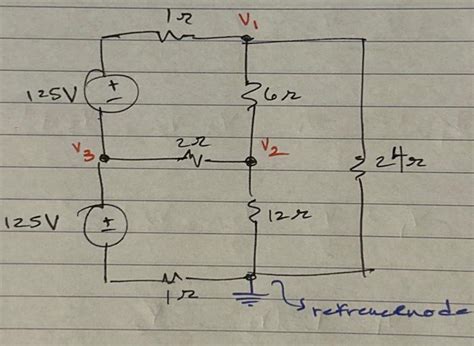 1Ω V1
125V + −
6Ω
V3 2Ω V2 24Ω
125V + −
12Ω
1Ω
refrencenode